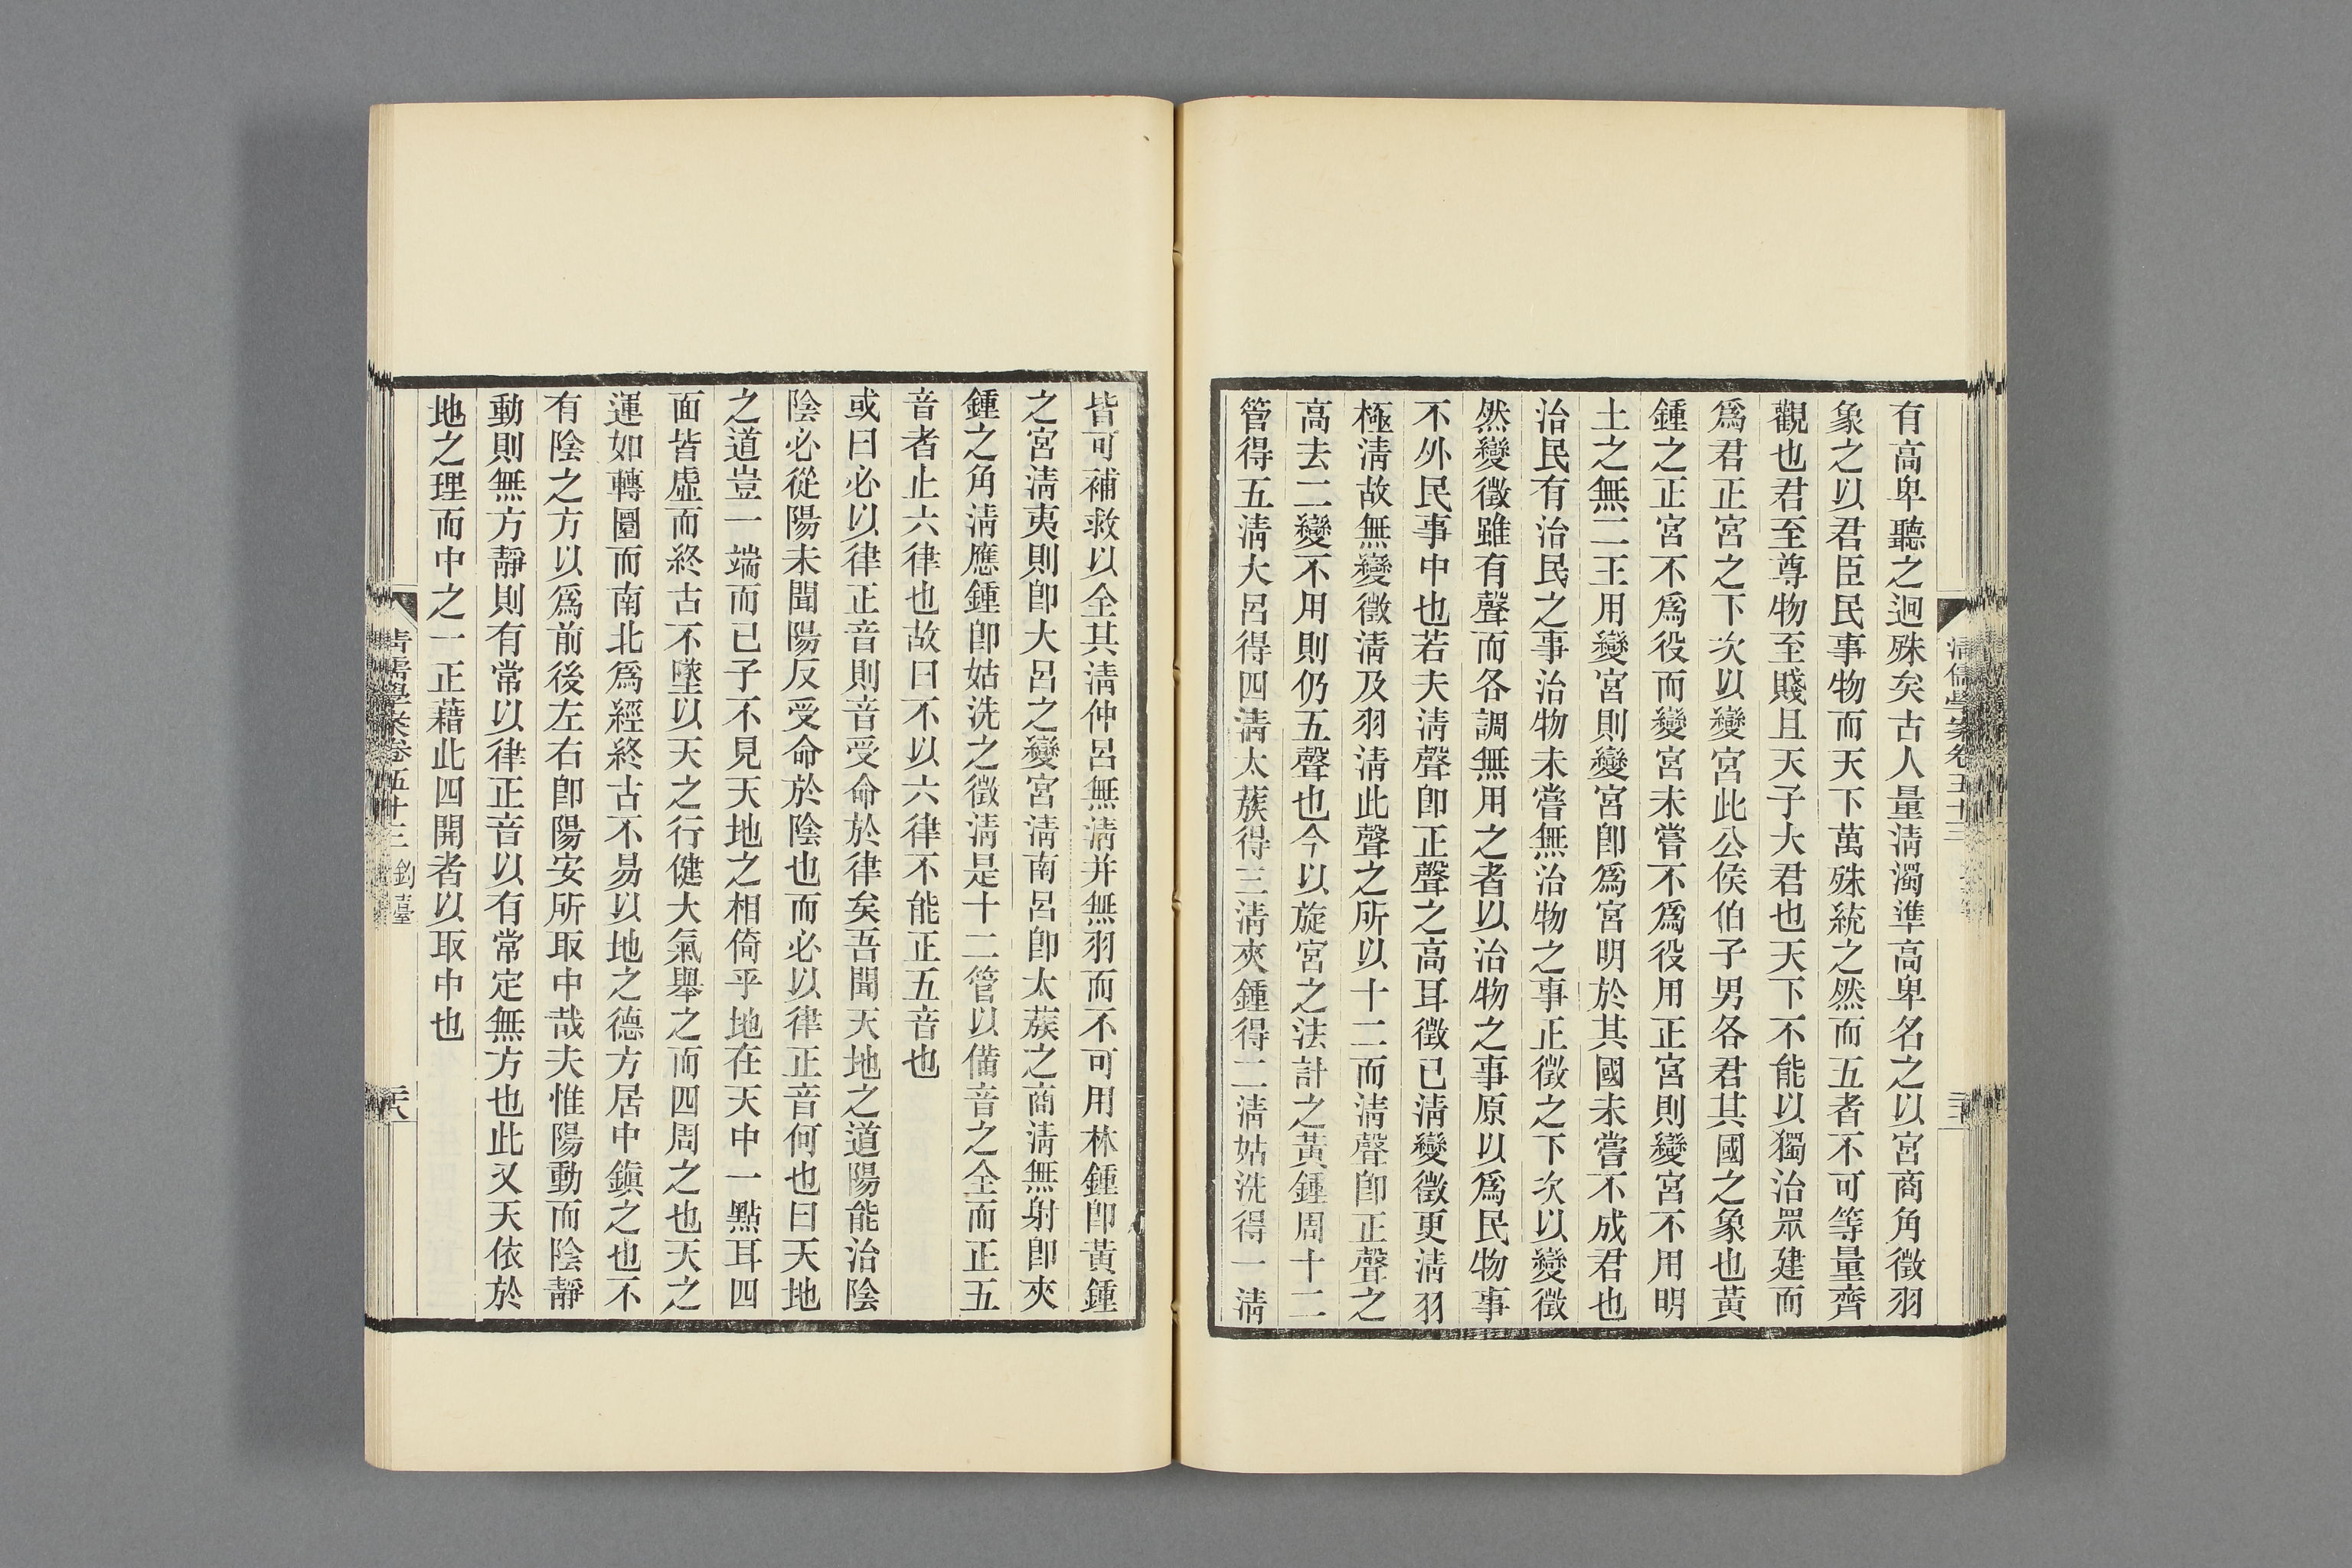 有高卑聽之迥殊矣古人量淸濁準高卑名之以宮商角徵羽
象之以君臣民事物而天下萬殊統之然而五者不可等量齊
觀也君至尊物至賤且天子大君也天下不能以獨治眾建而
爲君正宮之下次以變宮此公侯伯子男各君其國之象也黃
鍾之正宮不爲役而變宮未嘗不爲役用正宮則變宮不用明
土之無二王用變宮則變宮卽爲宮明於其國未嘗不成君也
治民有治民之事治物未嘗無治物之事正徵之下次以變徵
然變徵雖有聲而各調無用之者以治物之事原以爲民物事
不外民事中也若夫淸聲卽正聲之高耳徵已淸變徵更淸羽
極淸故無變徵淸及羽淸此聲之所以十二而淸聲卽正聲之
高去二變不用則仍五聲也今以旋宮之法計之黃鍾周十二
管得五淸大呂得四淸太蔟得三淸夾鍾得二淸姑洗得一淸
皆可補救以全其淸仲呂無淸并無羽而不可用林鍾卽黃鍾
之宮淸夷則卽大呂之變宮淸南呂卽太蔟之商淸無射卽夾
鍾之角淸應鍾卽姑洗之徵淸是十二管以備音之全而正五
音者止六律也故曰不以六律不能正五音也
或曰必以律正音則音受命於律矣吾聞天地之道陽能治陰
陰必從陽未聞陽反受命於陰也而必以律正音何也曰天地
之道豈一端而已子不見天地之相倚乎地在天中一點耳四
面皆虛而終古不墜以天之行健大氣舉之而四周之也天之
運如轉圜而南北爲經終古不易以地之德方居中鎭之也不
有陰之方以爲前後左右卽陽安所取中哉夫惟陽動而陰靜
動則無方靜則有常以律正音以有常定無方也此又天依於
地之理而中之一正藉此四開者以取中也
淸儒學案卷五十三 鈞臺